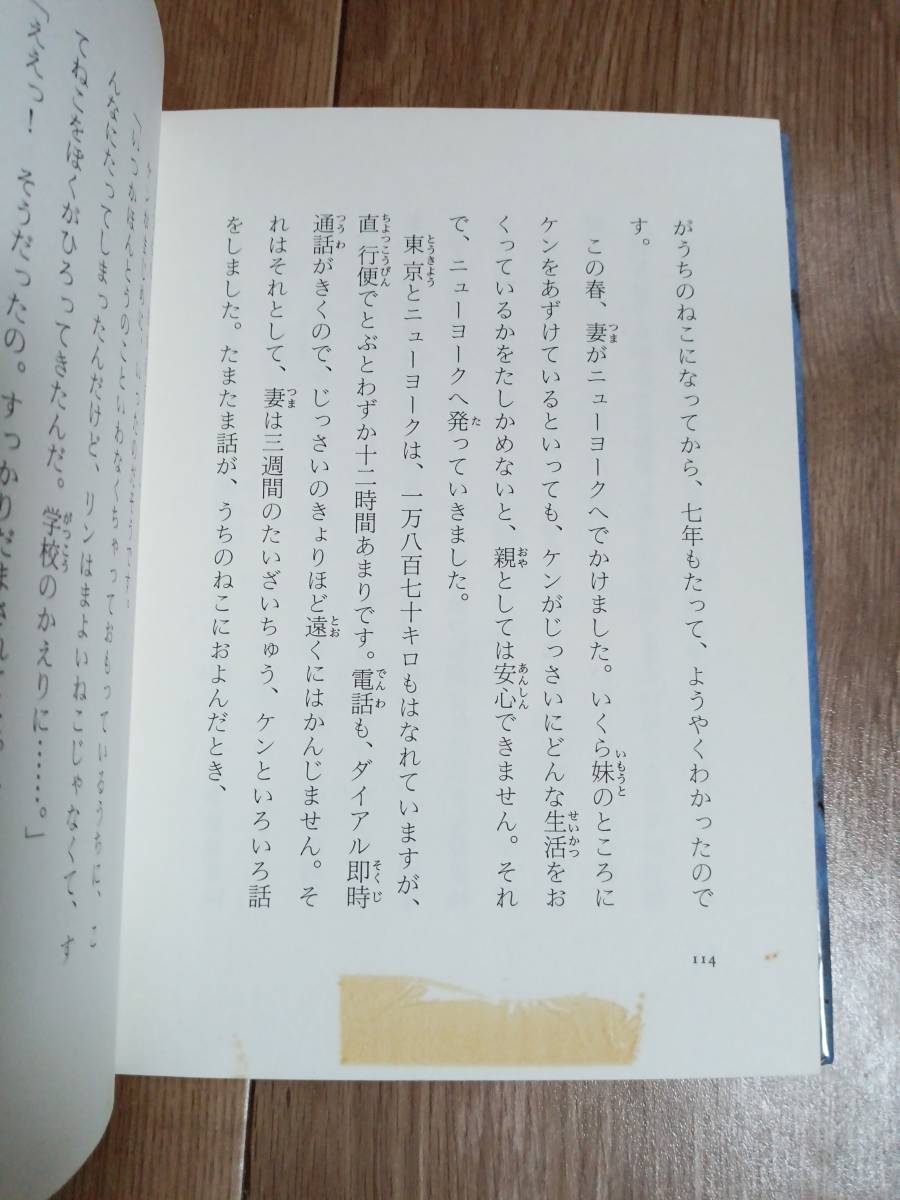 がうちのねこになってから、七年もたって、ようやくわかったので
す。
この春、妻がニューヨークへでかけました。いくら妹のところに
ケンをあずけているといっても、ケンがじっさいにどんな生活をお
くっているかをたしかめないと、親としては安心できません。それ
で、ニューヨークへ発っていきました。
東京とニューヨークは、一万八百七十キロもはなれていますが、
直行便でとぶとわずか十二時間あまりです。電話も、ダイアル即時
通話がきくので、じっさいのきょりほど遠くにはかんじません。そ
れはそれとして、妻は三週間のたいざいちゅう、ケンといろいろ話
をしました。たまたま話が、うちのねこにおよんだとき、
114
「いつかほんとうのこといわなくちゃっておもっているうちに、こ
んなにたってしまったんだけど、リンはまよいねこじゃなくて、す
てねこをぼくがひろってきたんだ。学校のかえりに……。」
「ええっ！　そうだったの。すっかりだまされて